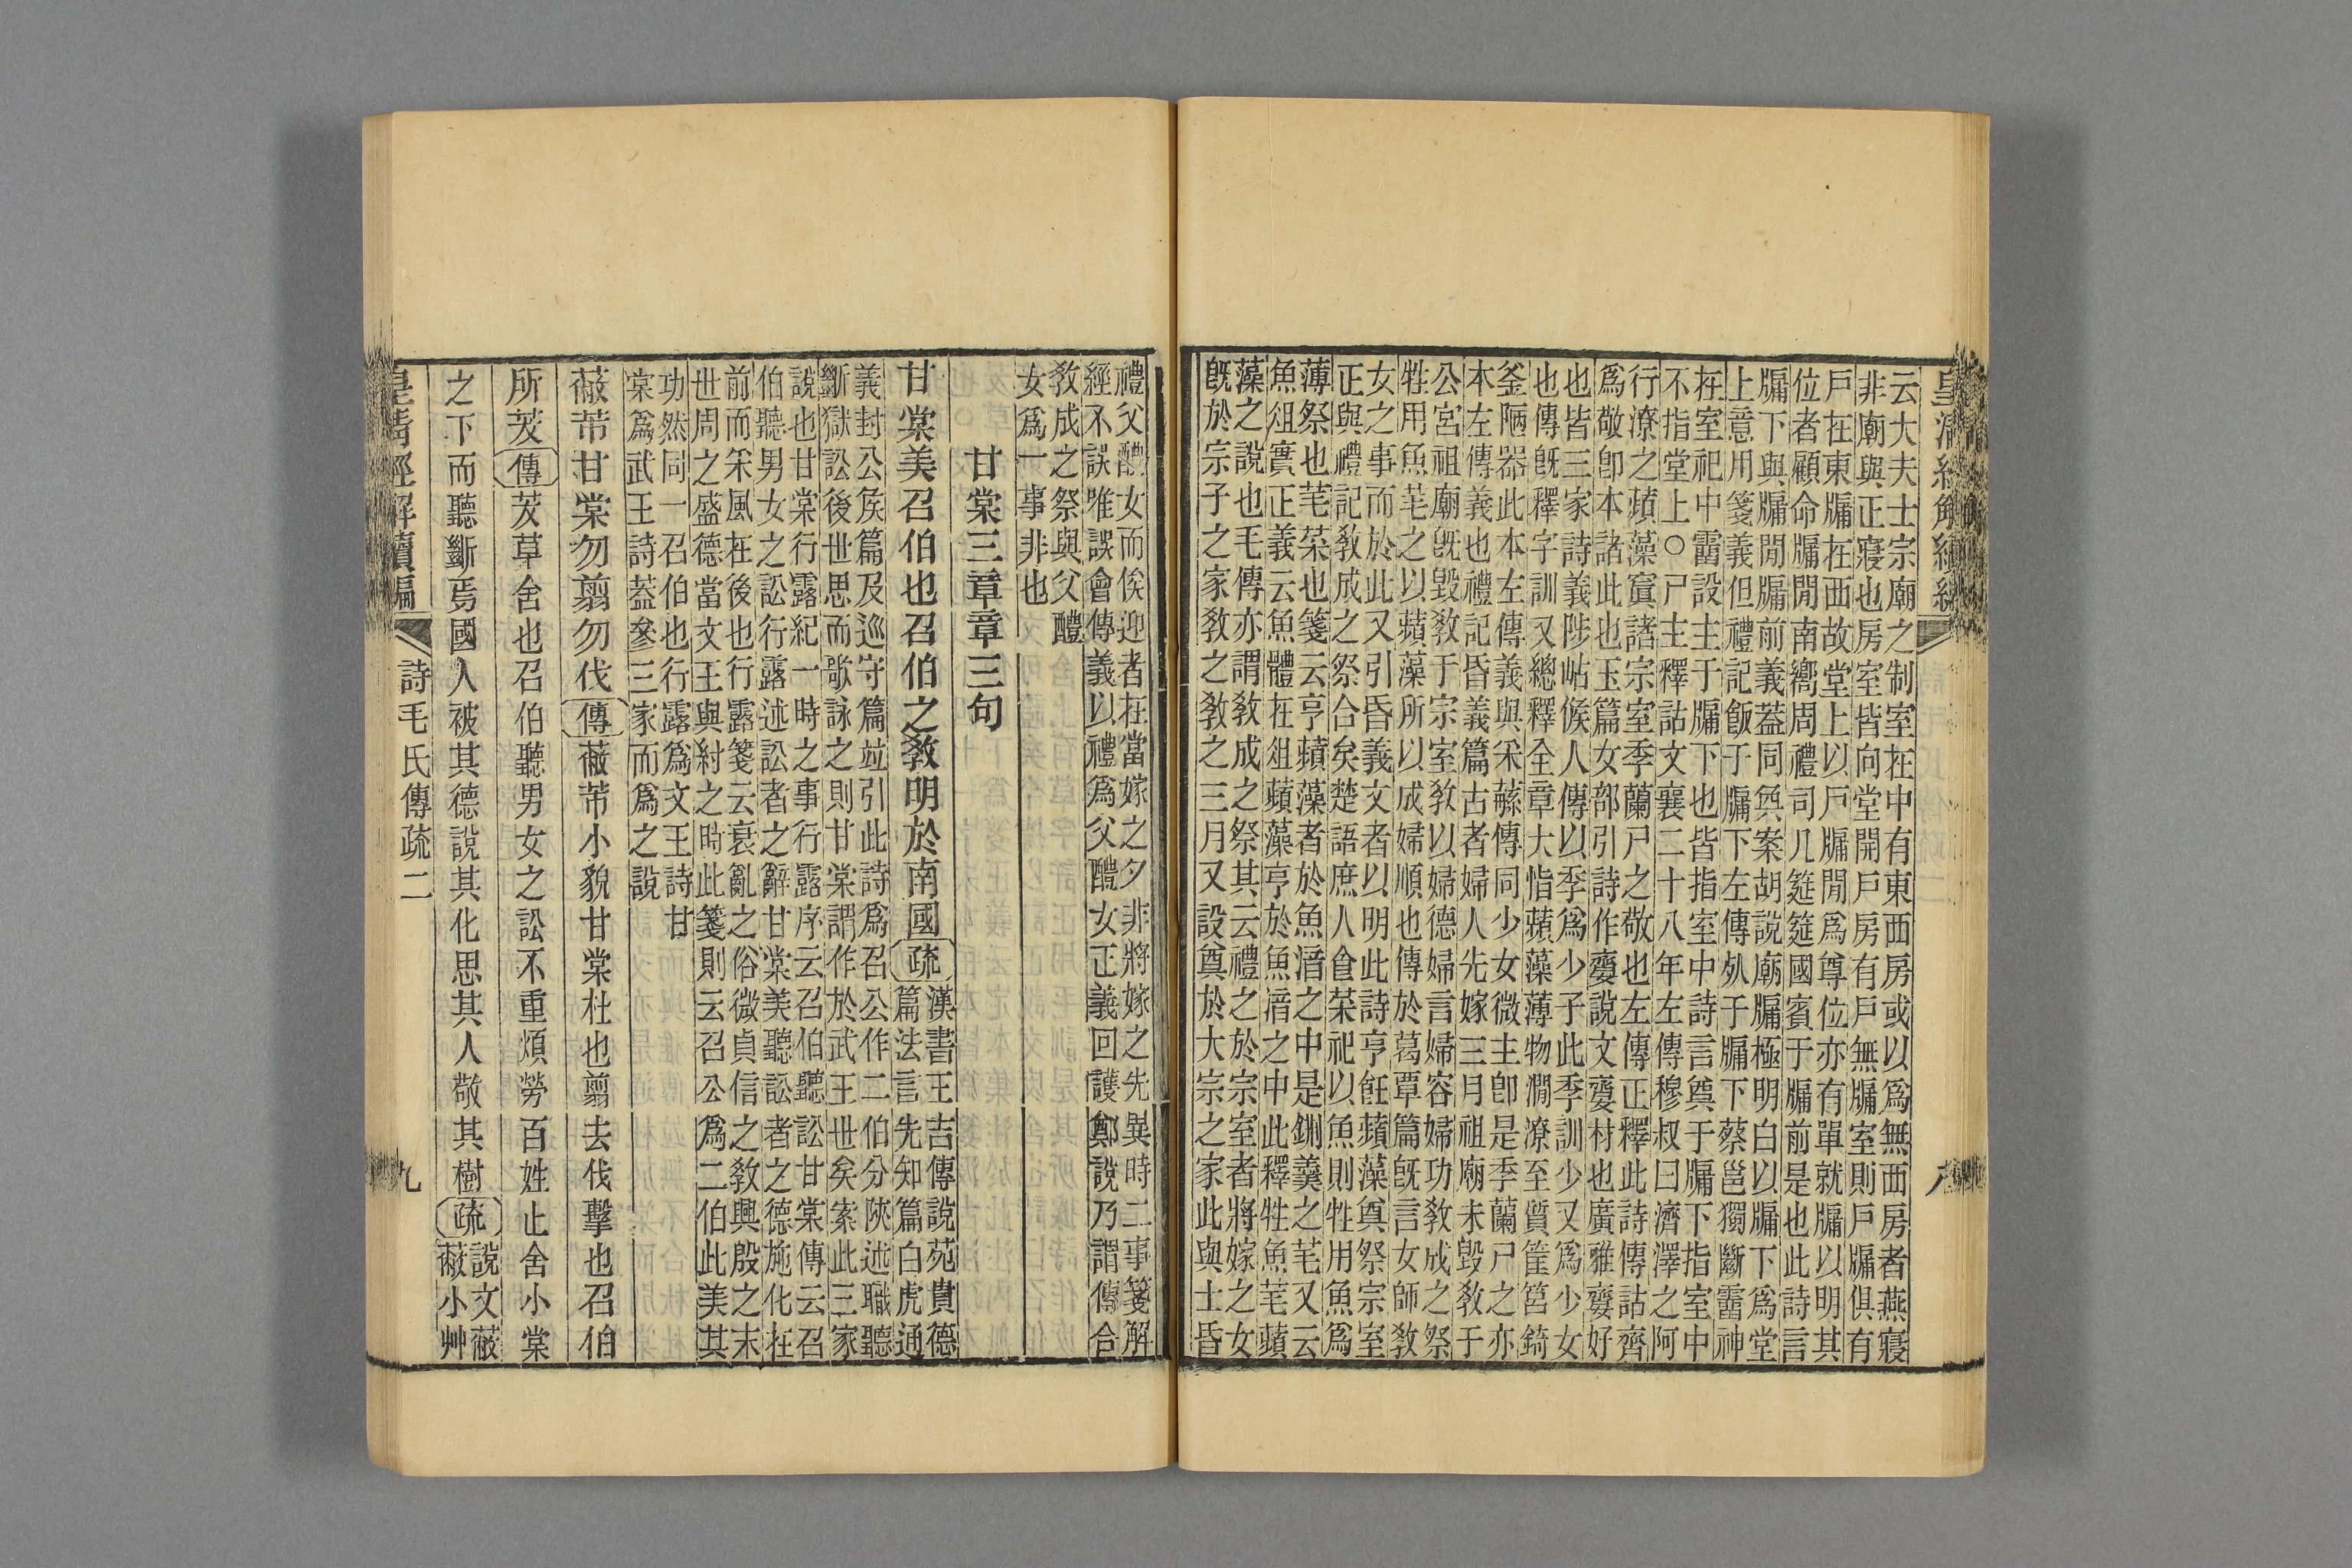 皇清經解續編
八
云大夫士宗廟之制室在中有東西房或以爲無西房者燕寢
非廟與正寢也房室皆向堂開戶房有戶無牖室則戶牖俱有
戶在東牖在西故堂上以戶牖閒爲尊位亦有單就牖以明其
位者顧命牖閒南嚮周禮司几筵筵國賓于牖前是也此詩言
牖下與牖閒牖前義葢同與案胡說廟牖極明白以牖下爲堂
上意用箋義但禮記飯于牖下左傳夘于牖下蔡邕獨斷霤神
在室祀中霤設主于牖下也皆指室中詩言奠于牖下指室中
不指堂上○尸主釋詁文襄二十八年左傳穆叔曰濟澤之阿
行潦之蘋藻寘諸宗室季蘭尸之敬也左傳正釋此詩傳詁齊
爲敬卽本諸此也玉篇女部引詩作齌說文齌材也廣雅齌好
也皆三家詩義陟岵候人傳以季爲少子此季訓少又爲少女
也傳旣釋字訓又總釋全章大恉蘋藻薄物澗潦至質筐筥錡
釜陋器此本左傳義與采蘩傳同少女微主卽是季蘭尸之亦
本左傳義也禮記昏義篇古者婦人先嫁三月祖廟未毀敎于
公宮祖廟旣毀敎于宗室敎以婦德婦言婦容婦功敎成之祭
牲用魚芼之以蘋藻所以成婦順也傳於葛覃篇旣言女師敎
女之事而於此又引昏義文者以明此詩亨飪蘋藻奠祭宗室
正與禮記敎成之祭合矣楚語庶人食菜祀以魚則牲用魚爲
薄祭也芼菜也箋云亨蘋藻者於魚湆之中是鉶羹之芼又云
魚俎實正義云魚體在俎蘋藻亨於魚湆之中此釋牲魚芼蘋
藻之說也毛傳亦謂敎成之祭其云禮之於宗室者將嫁之女
旣於宗子之家敎之敎之三月又設奠於大宗之家此與士昏
禮父醴女而俟迎者在當嫁之夕非將嫁之先異時二事箋解
經不誤唯誤會傳義以禮爲父醴女正義回護鄭說乃謂傳合
敎成之祭與父醴
女爲一事非也
甘棠三章章三句
甘棠美召伯也召伯之敎明於南國疏漢書王吉傳說苑貴德
篇法言先知篇白虎通
義封公侯篇及巡守篇竝引此詩爲召公作二伯分陝述職聽
斷獄訟後世思而歌詠之則甘棠謂作於武王世矣案此三家
說也甘棠行露紀一時之事行露序云召伯聽訟甘棠傳云召
伯聽男女之訟行露述訟者之辭甘棠美聽訟者之德施化在
前而采風在後也行露箋云衰亂之俗微貞信之敎興殷之末
世周之盛德當文王與紂之時此箋則云召公爲二伯此美其
功然同一召伯也行露爲文王詩甘
棠爲武王詩葢參三家而爲之說
蔽芾甘棠勿翦勿伐傳蔽芾小貌甘棠杜也翦去伐擊也召伯
所茇傳茇草舍也召伯聽男女之訟不重煩勞百姓止舍小棠
之下而聽斷焉國人被其德說其化思其人敬其樹疏說文蔽
蔽小艸
皇清經解續編
詩毛氏傳疏二
九